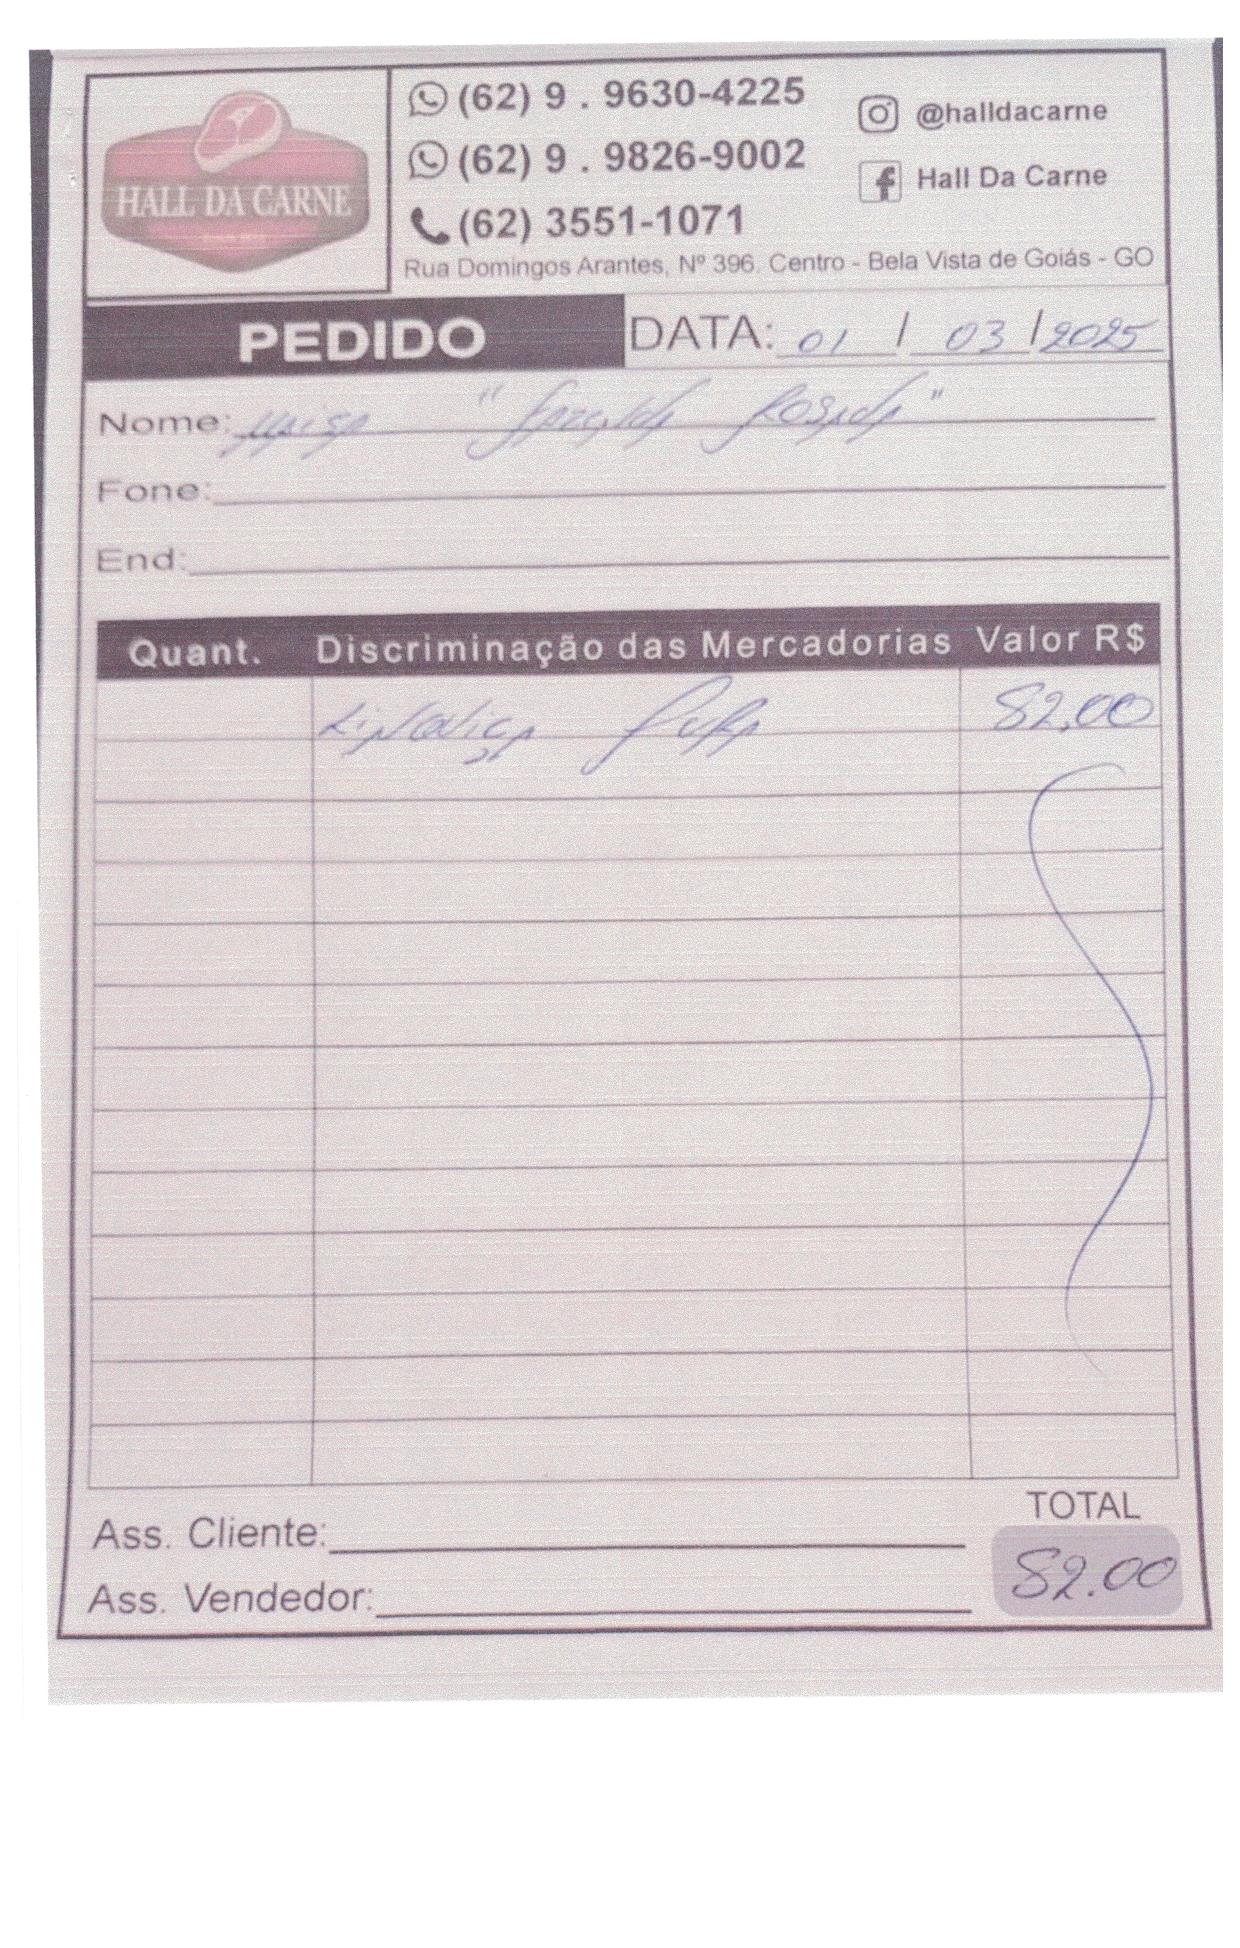 HALL DA CARNE
(62) 9 . 9630-4225
(62) 9 . 9826-9002
(62) 3551-1071
@halldacarne
Hall Da Carne
Rua Domingos Arantes, Nº 396. Centro - Bela Vista de Goiás - GO
PEDIDO DATA: 01 / 03 / 2025
Nome:
Fone:
End:
Quant. Discriminação das Mercadorias Valor R$
82,00
TOTAL
Ass. Cliente: 82.00
Ass. Vendedor: